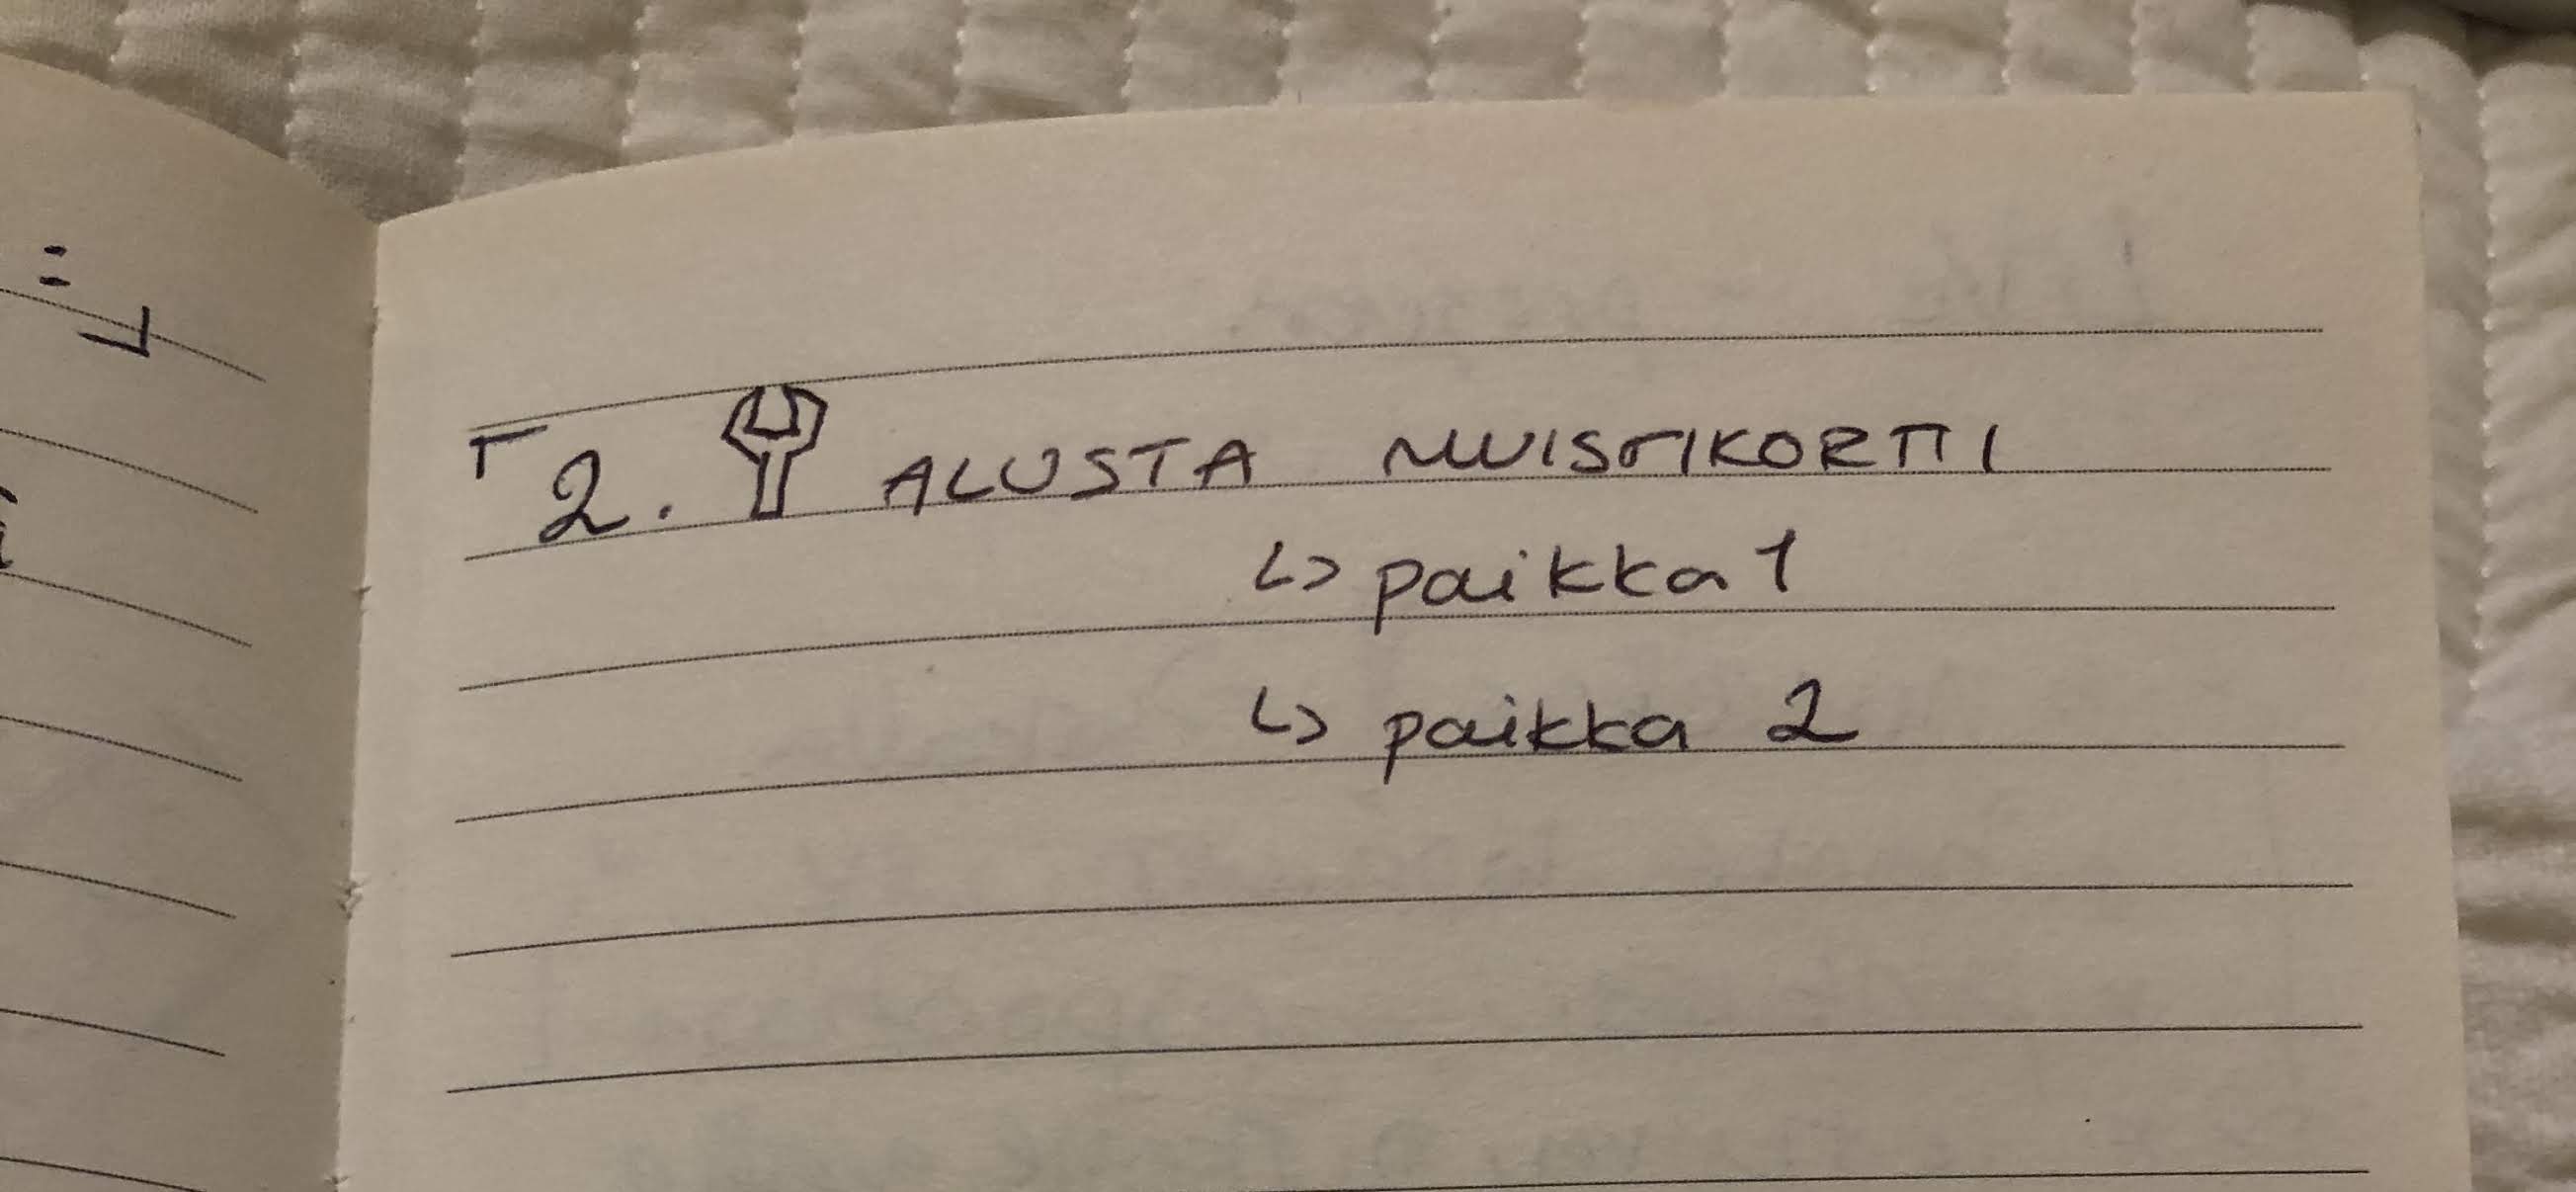 2. ALUSTA MUISTIKORTTI
↳ paikka 1
↳ paikka 2